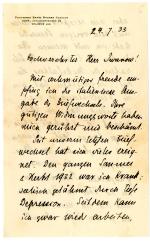 29. V. 33
Hochverehrter Herr Iwanow!
Mit aufrichtiger Freude em-
pfing ich die italienische Aus-
gabe des Briefwechsels. Ihre
gütigen Widmungsworte haben
mich gerührt und beschämt.
Seit unserem letzten Brief-
wechsel hat sich vieles ereig-
net. Den ganzen Sommer
u. Herbst 1932 war ich
gelähmt durch
Depression. Seitdem kann
ich zwar wieder arbeiten,